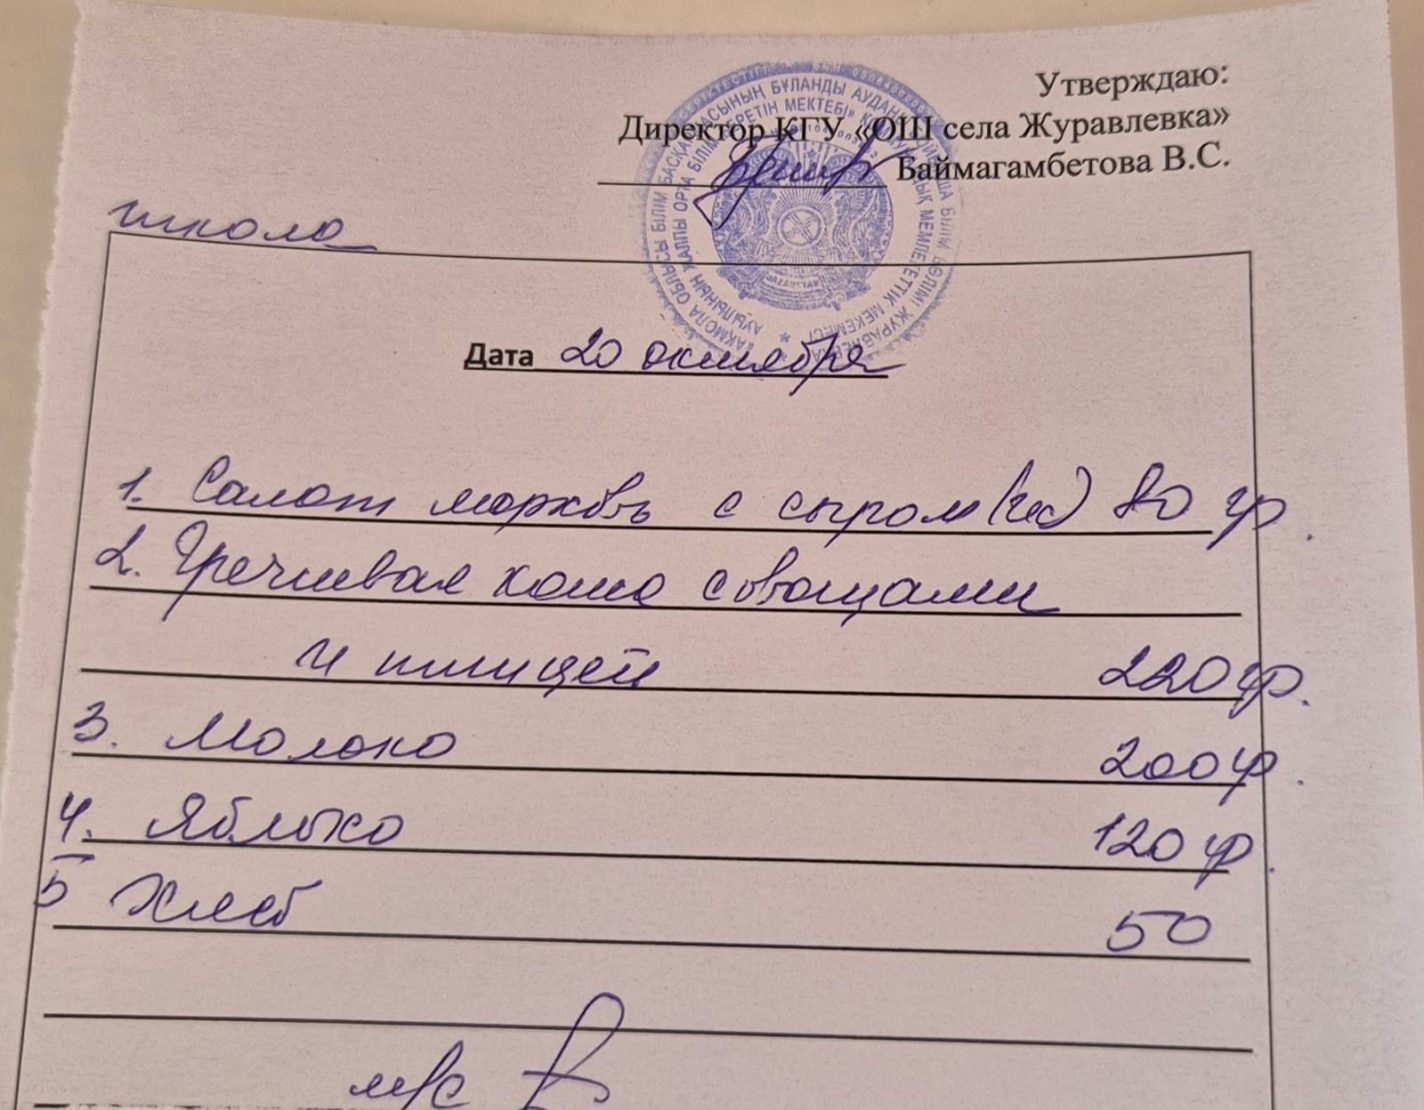 Утверждаю:
Директор КГУ «ОШ села Журавлевка»
Баймагамбетова В.С.
школа
Дата 20 октября
1. Салат морковь с сыром 80 гр.
2. Гречневая каша с овощами
и птицей 220 гр.
3. Молоко 200 гр.
4. Яблоко 120 гр.
5 Хлеб 50
м/с